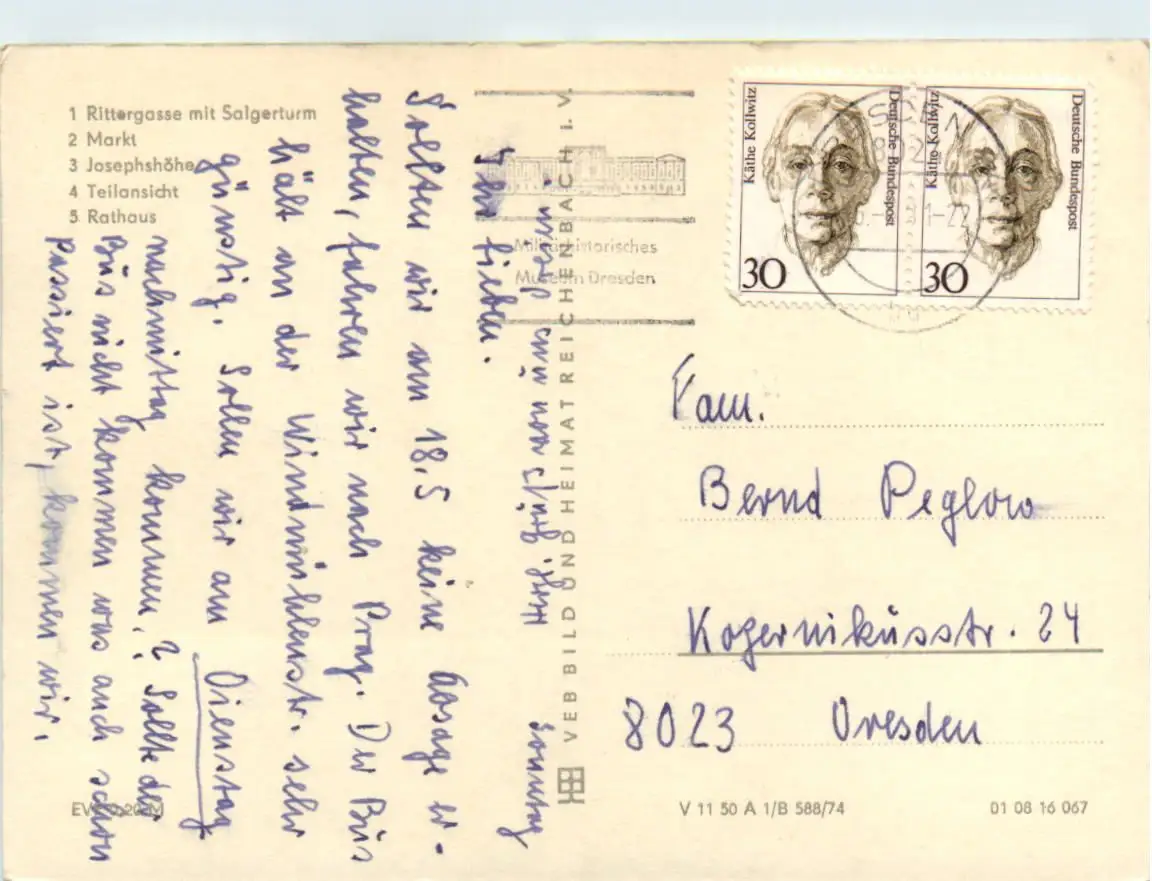 1 Rittergasse mit Salgerturm
2 Markt
3 Josephshöhe
4 Teilansicht
5 Rathaus
Sonntag
Ihr Lieben.
Sollten wir am 18.5 keine Absage er-
halten, fahren wir nach Prag. Der Bus
hält an der Windmühlenstr. sehr
günstig. Sollen wir am Dienstag
nachmittag kommen.? Sollte der
Bus nicht kommen was auch schon
passiert ist, kommen wir.
Herzl. Grüß von uns
VEB BILD UND HEIMAT REICHENBACH i. V.
Militärhistorisches
Museum Dresden
Käthe Kollwitz
Deutsche Bundespost
30
Käthe Kollwitz
Deutsche Bundespost
30
Fam.
Bernd Peglow
Kopernikusstr. 24
8023 Dresden
V 11 50 A 1/B 588/74
01 08 16 067